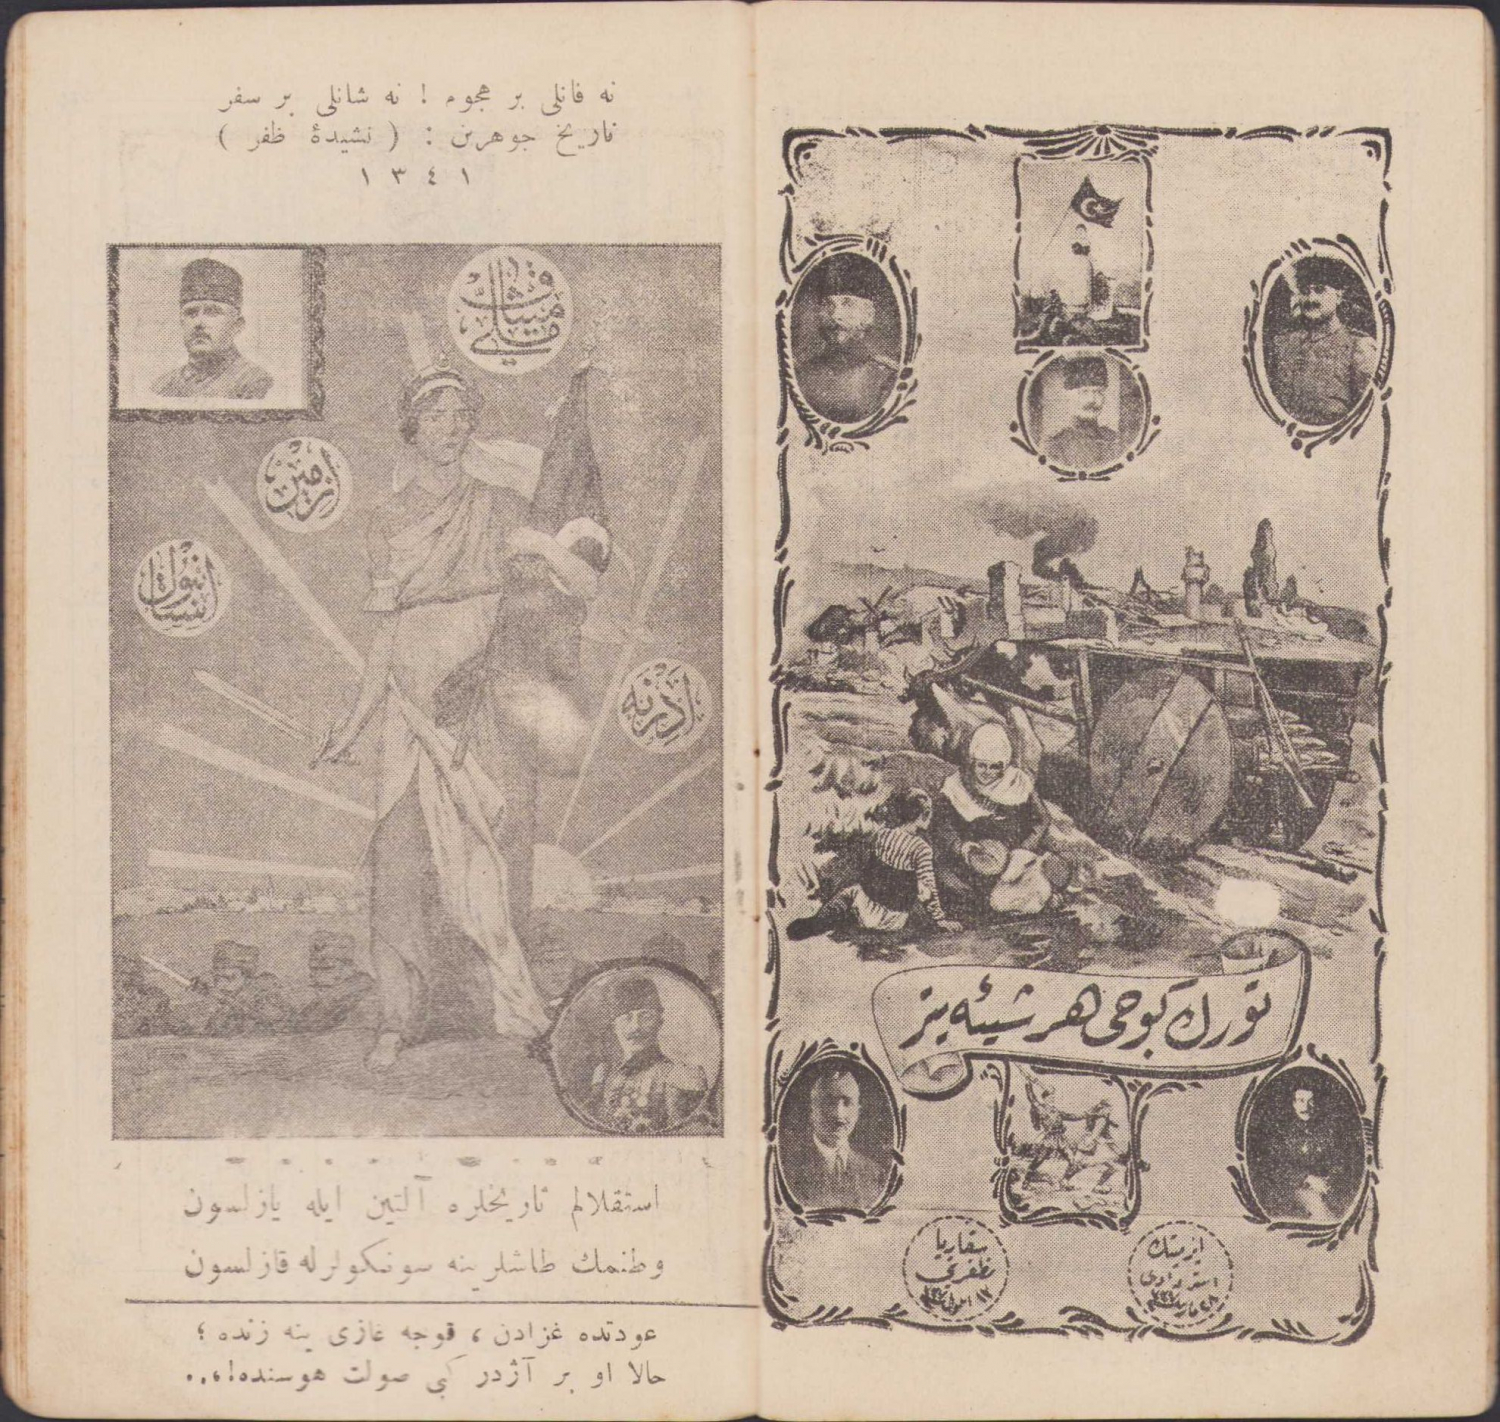 نه قانلی بر هجوم ! نه شانلی بر سفر
تاریخ جوهرین : ( نشیدهٔ ظفر )
١٣٤١
میثاق ملی
ازمیر
استانبول
ادرنه
استقلالم تاریخلره آلتین ایله یازلسون
وطنمك طاشلرینه سونکولرله قازلسون
عودتده غزادن ، قوجه غازی ینه زنده ؛
حالا او بر آژدر کبی صولت هوسنده!...
تورك کوجی هر شیئه یتر
سقاریا
ظفری
ازمیرك
استردادی